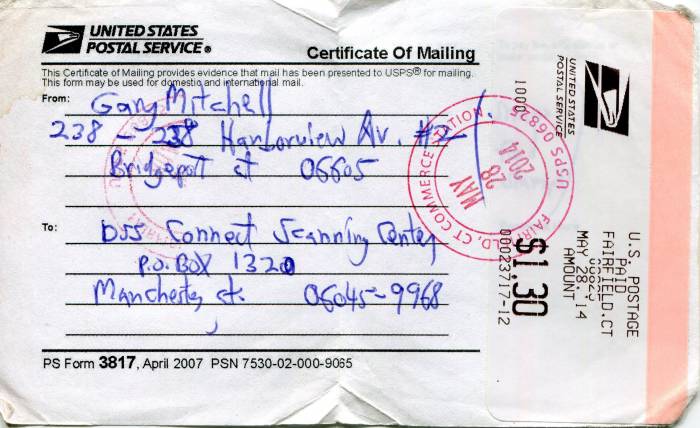 UNITED STATES
POSTAL SERVICE®
Certificate Of Mailing
This Certificate of Mailing provides evidence that mail has been presented to USPS® for mailing.
This form may be used for domestic and international mail.
From:
Gary Mitchell
238 - 238 Harborview Av. #2
Bridgeport ct 06605
To:
DSS Connect Scanning Center
P.O. BOX 1320
Manchester, ct. 06045-9968
PS Form 3817, April 2007 PSN 7530-02-000-9065
FAIRFIELD, CT COMMERCE STATION
USPS 06825
MAY
28
2014
UNITED STATES
POSTAL SERVICE
1000
U.S. POSTAGE
PAID
FAIRFIELD.CT
MAY 28.'14
AMOUNT
$1.30
00023717-12